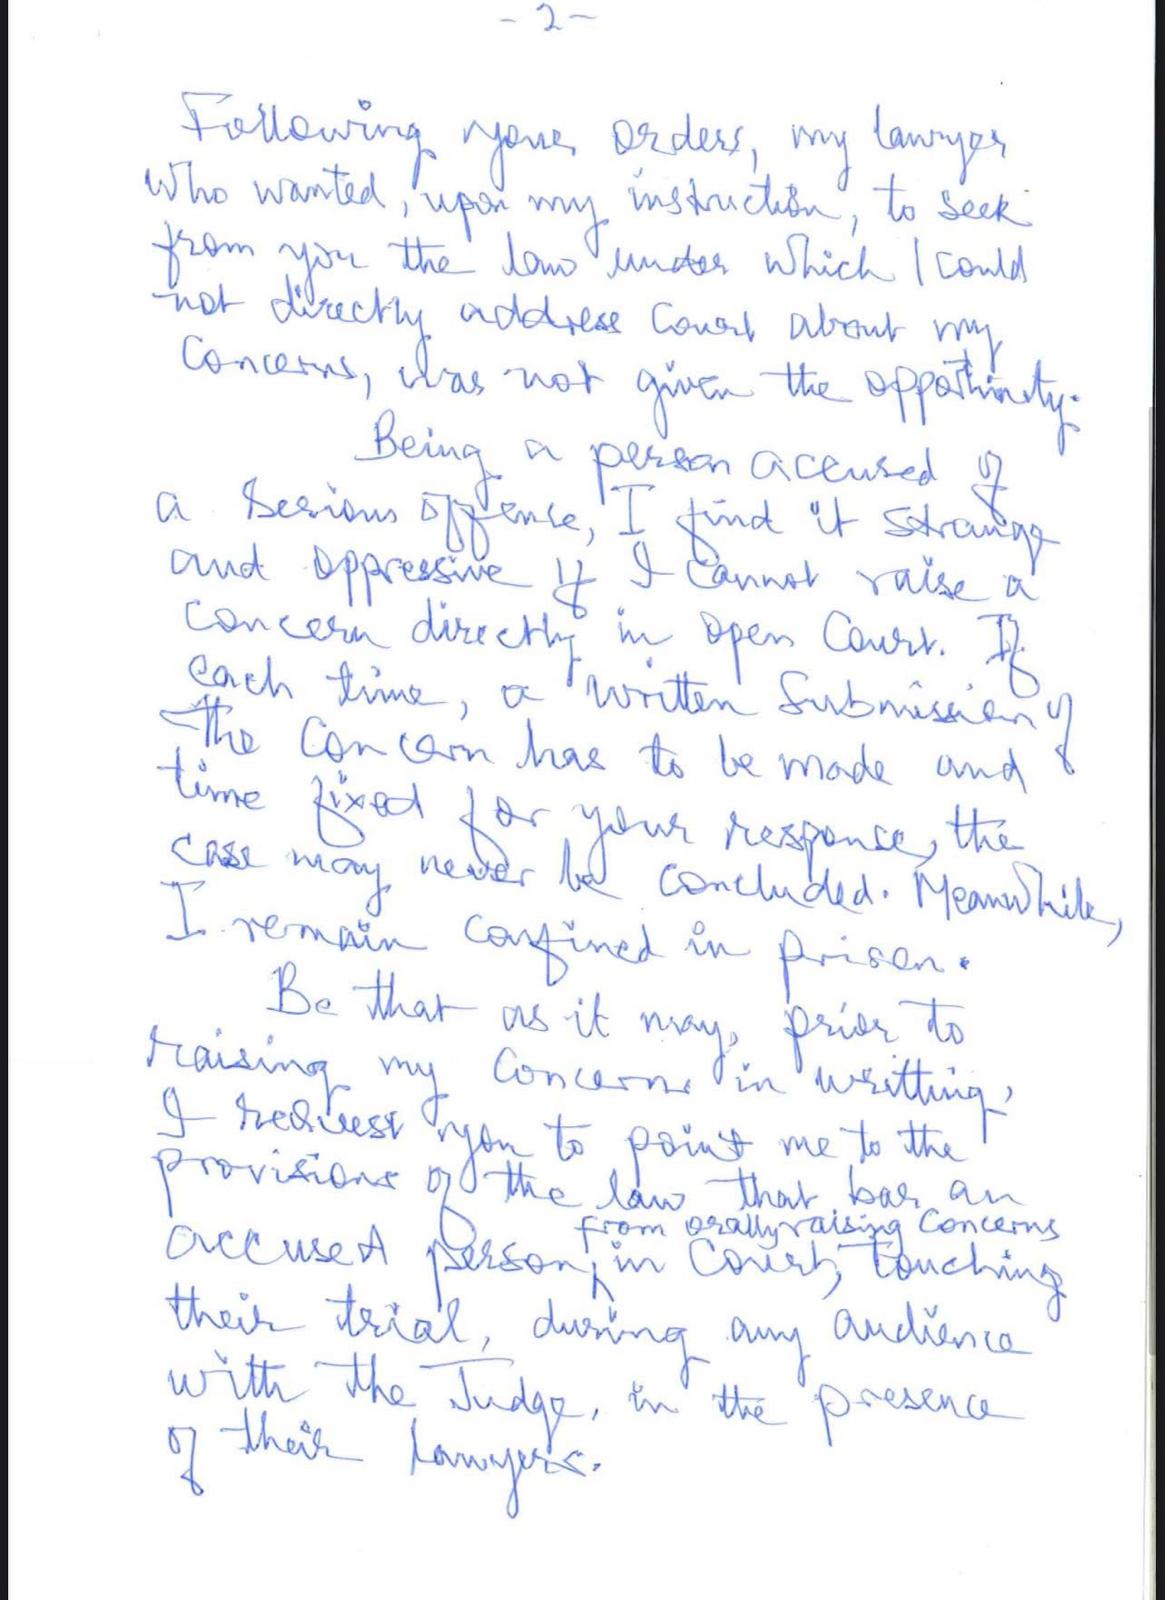 - 2 -
Following your orders, my lawyer
who wanted, upon my instruction, to seek
from you the law under which I could
not directly address Court about my
Concerns, was not given the opportunity.
Being a person accused of
a serious offense, I find it strange
and oppressive if I cannot raise a
concern directly in open Court. If
each time, a written submission of
the concern has to be made and
time fixed for your response, the
case may never be concluded. Meanwhile,
I remain confined in prison.
Be that as it may, prior to
raising my concerns in writting,
I request you to point me to the
provisions of the law that bar an
from orally raising concerns
accused person, in Court, touching
their trial, during any audience
with the Judge, in the presence
of their lawyers.